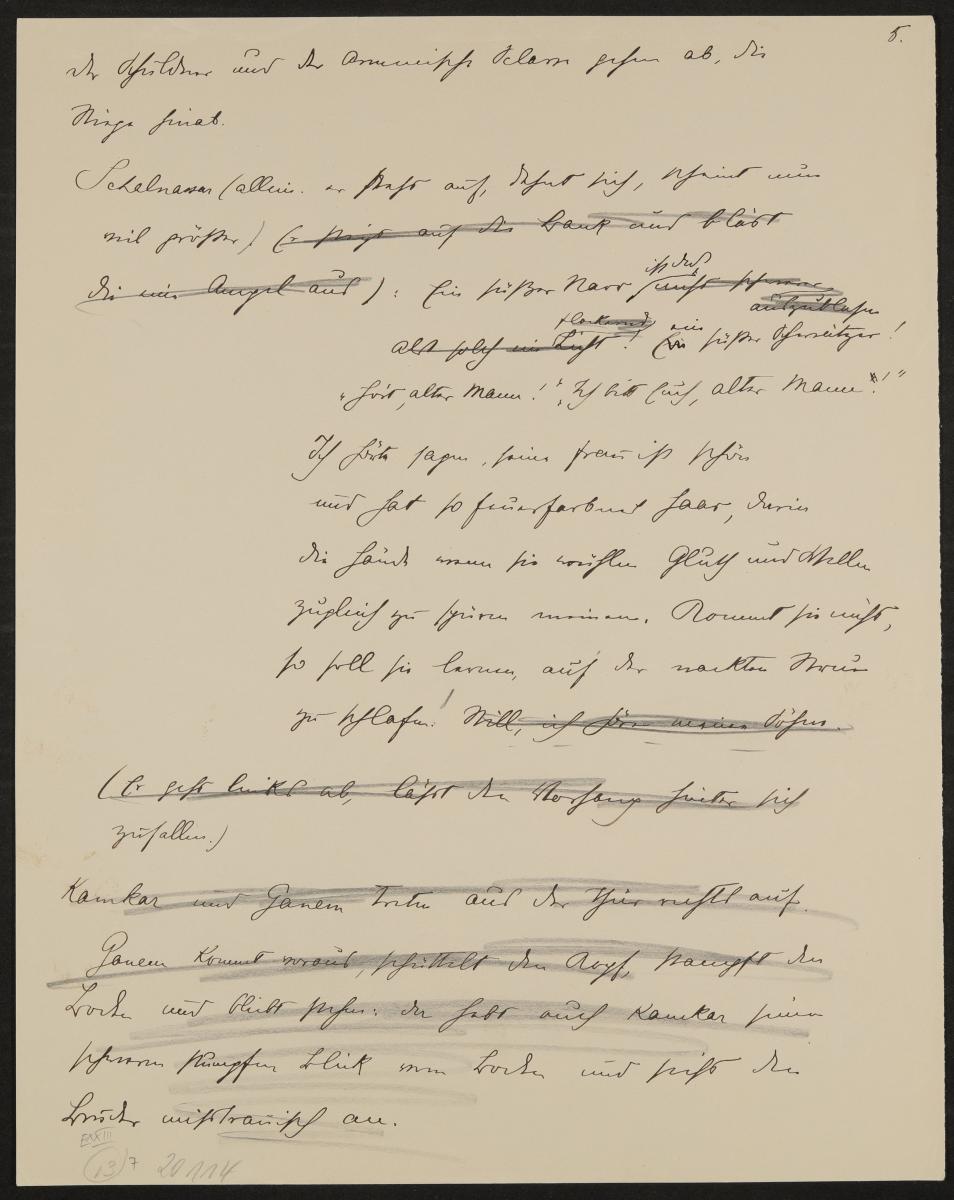 5.
der Schuldner und der armenische Sclave gehen ab, die
Stiege hinab.
Schalnassar (allein. er steht auf, dehnt sich, scheint nun
viel größer) (Er steigt auf die Bank und bläst
die eine Ampel aus): Ein süßer Narr ist das! nicht schwerer
auszublasen
als solch ein flackernd Licht! Ein ein süßer Schwätzer!
„hört, alter Mann!" „Ich bitt Euch, alter Mann!"
Ich hörte sagen, seine Frau ist schön
und hat so feuerfarbnes Haar, darin
die Hände wenn sie wühlen Gluth und Wellen
zugleich zu spüren meinen. Kommt sie nicht,
so soll sie lernen, auf der nackten Streu
zu schlafen! Still, ich höre meine Söhne.
(Er geht links ab, läßt den Vorhang hinter sich
zufallen.)
Kamkar und Ganem treten aus der Thür rechts auf.
Ganem kommt voraus, schüttelt den Kopf, stampft den
Boden und bleibt stehen: da hebt auch Kamkar seinen
schweren stumpfen Blick vom Boden und sieht den
Bruder misstrauisch an.
EXXIII
(13) 7 20114